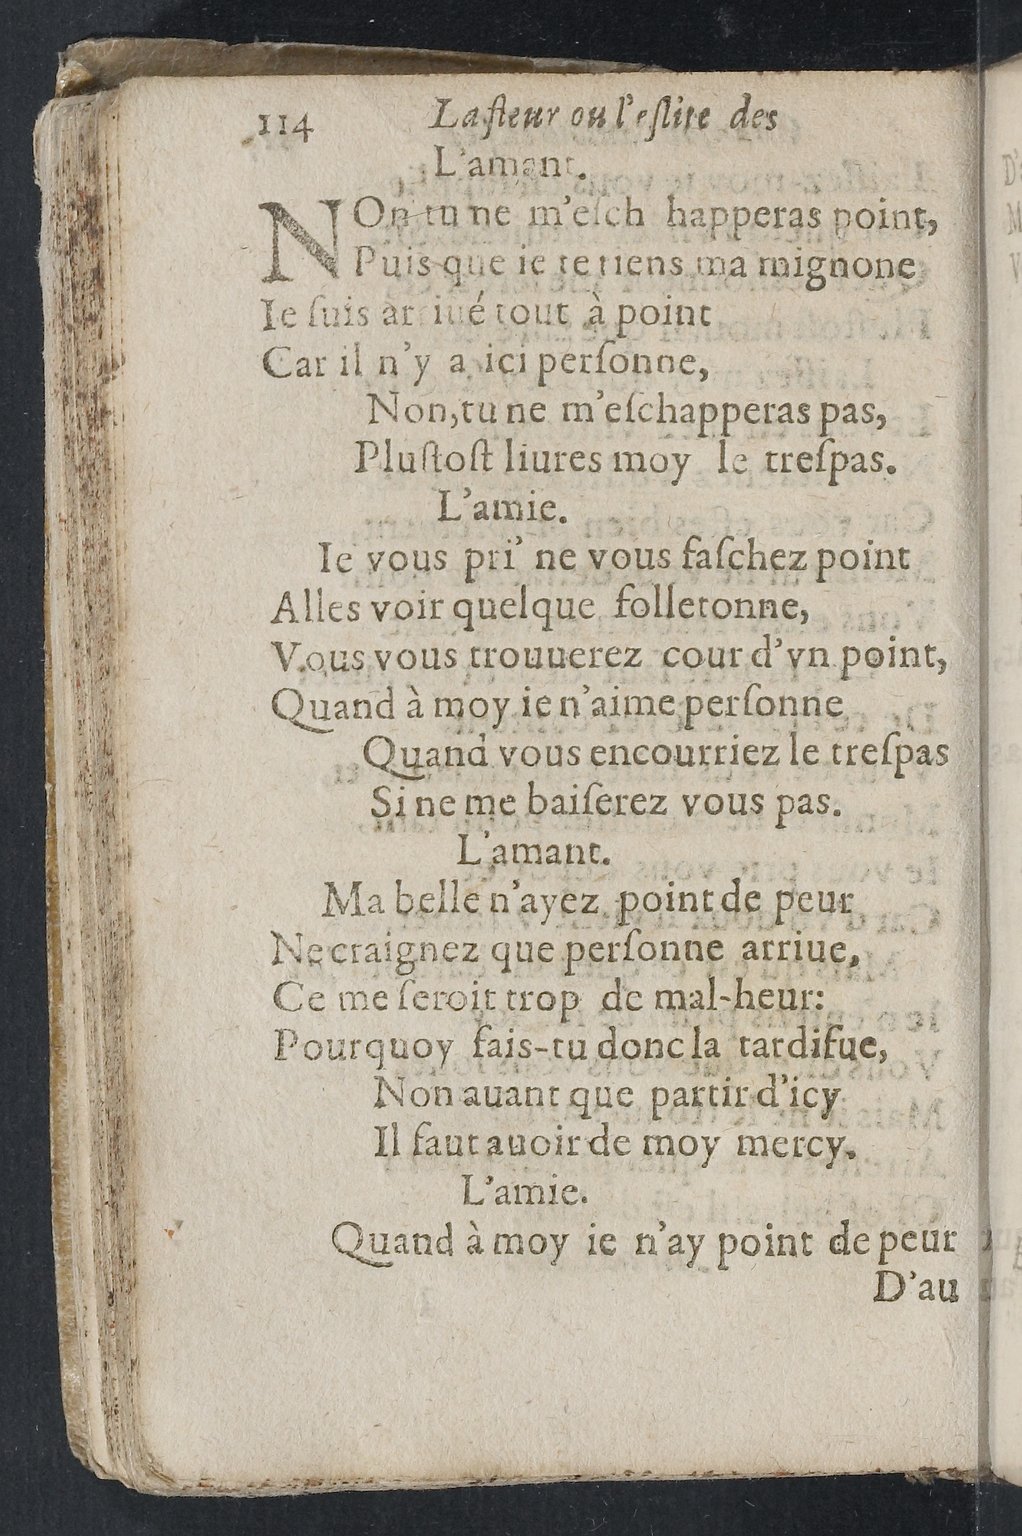 114 La fleur ou l'eslite des
L'amant.
NOn tu ne m'eſch happeras point,
Puis que ie te tiens ma mignone
Ie ſuis arriué tout à point
Car il n'y a ici perſonne,
Non, tu ne m'eſchapperas pas,
Pluſtoſt liures moy le treſpas.
L'amie.
Ie vous pri' ne vous faſchez point
Alles voir quelque folletonne,
Vous vous trouuerez cour d'vn point,
Quand à moy ie n'aime perſonne
Quand vous encourriez le treſpas
Si ne me baiſerez vous pas.
L'amant.
Ma belle n'ayez point de peur
Ne craignez que perſonne arriue,
Ce me ſeroit trop de mal-heur:
Pourquoy fais-tu donc la tardifue,
Non auant que partir d'icy
Il faut auoir de moy mercy.
L'amie.
Quand à moy ie n'ay point de peur
D'au